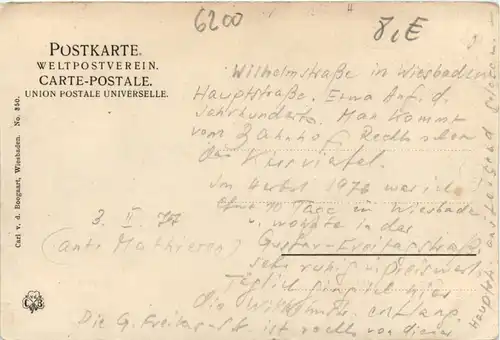 6200
8,E
POSTKARTE.
WELTPOSTVEREIN.
CARTE-POSTALE.
UNION POSTALE UNIVERSELLE.
Carl v. d. Boogaart, Wiesbaden. No. 350.
Wilhelmstraße in Wiesbaden
Hauptstraße. Etwa Anf. d.
Jahrhunderts. Man kommt
vom Bahnhof. Rechts schon
das Kurviertel.
Im Herbst 1976 war ich
10 Tage in Wiesbaden
u. wohnte in der
Gustav-Freitagstraße
sehr ruhig u. preiswert
Täglich ging ich hier
die Wilhelmstr. entlang.
Die G. Freitag-Str. ist rechts von dieser
Hauptstr.
3. II. 77